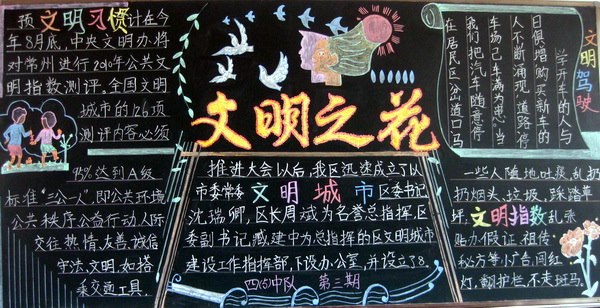 预文明习惯计在今
年8月底,中央文明办将
对常州进行2010年公共文
明指数测评。全国文明
城市的126项
测评内容必须
95%达到A级
标准“三公一人”,即公共环境
公共秩序公益行动,人际
交往热情、友善、诚信
守法、文明,如搭
乘交通工具.
文明之花
推进大会以后,我区迅速成立了以
市委常委文明城市区委书记
沈瑞卿,区长周斌为名誉总指挥,区
委副书记臧建中为总指挥的区文明城市
建设工作指挥部,下设办公室,并设立了8
四(5)中队 第三期
文明驾驶
学开车的人与
日俱增购买新车的
人不断涌现,道路停
车场已车满为患,当
我们把汽车随意停
在居民区分道司马
一些人随地吐痰,乱扔
扔烟头、垃圾、踩踏草
坪,文明指数乱张
贴办假证、祖传
秘方等小广告,闯红
灯,翻护栏,不走斑马.